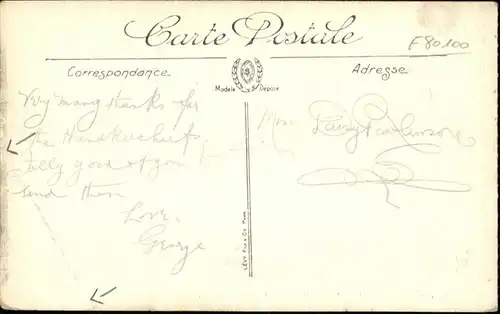 Carte Postale
F80100
Correspondance
Adresse
Modèle Déposé
Very many thanks for
the Handkerchiefs,
jolly good of you
send them
Love,
George
LÉVY Fils & Cie Paris